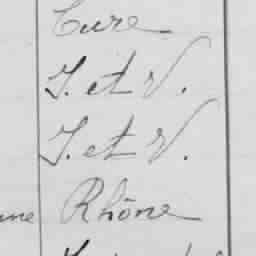 Eure
I. et V.
I. et V.
Rhône